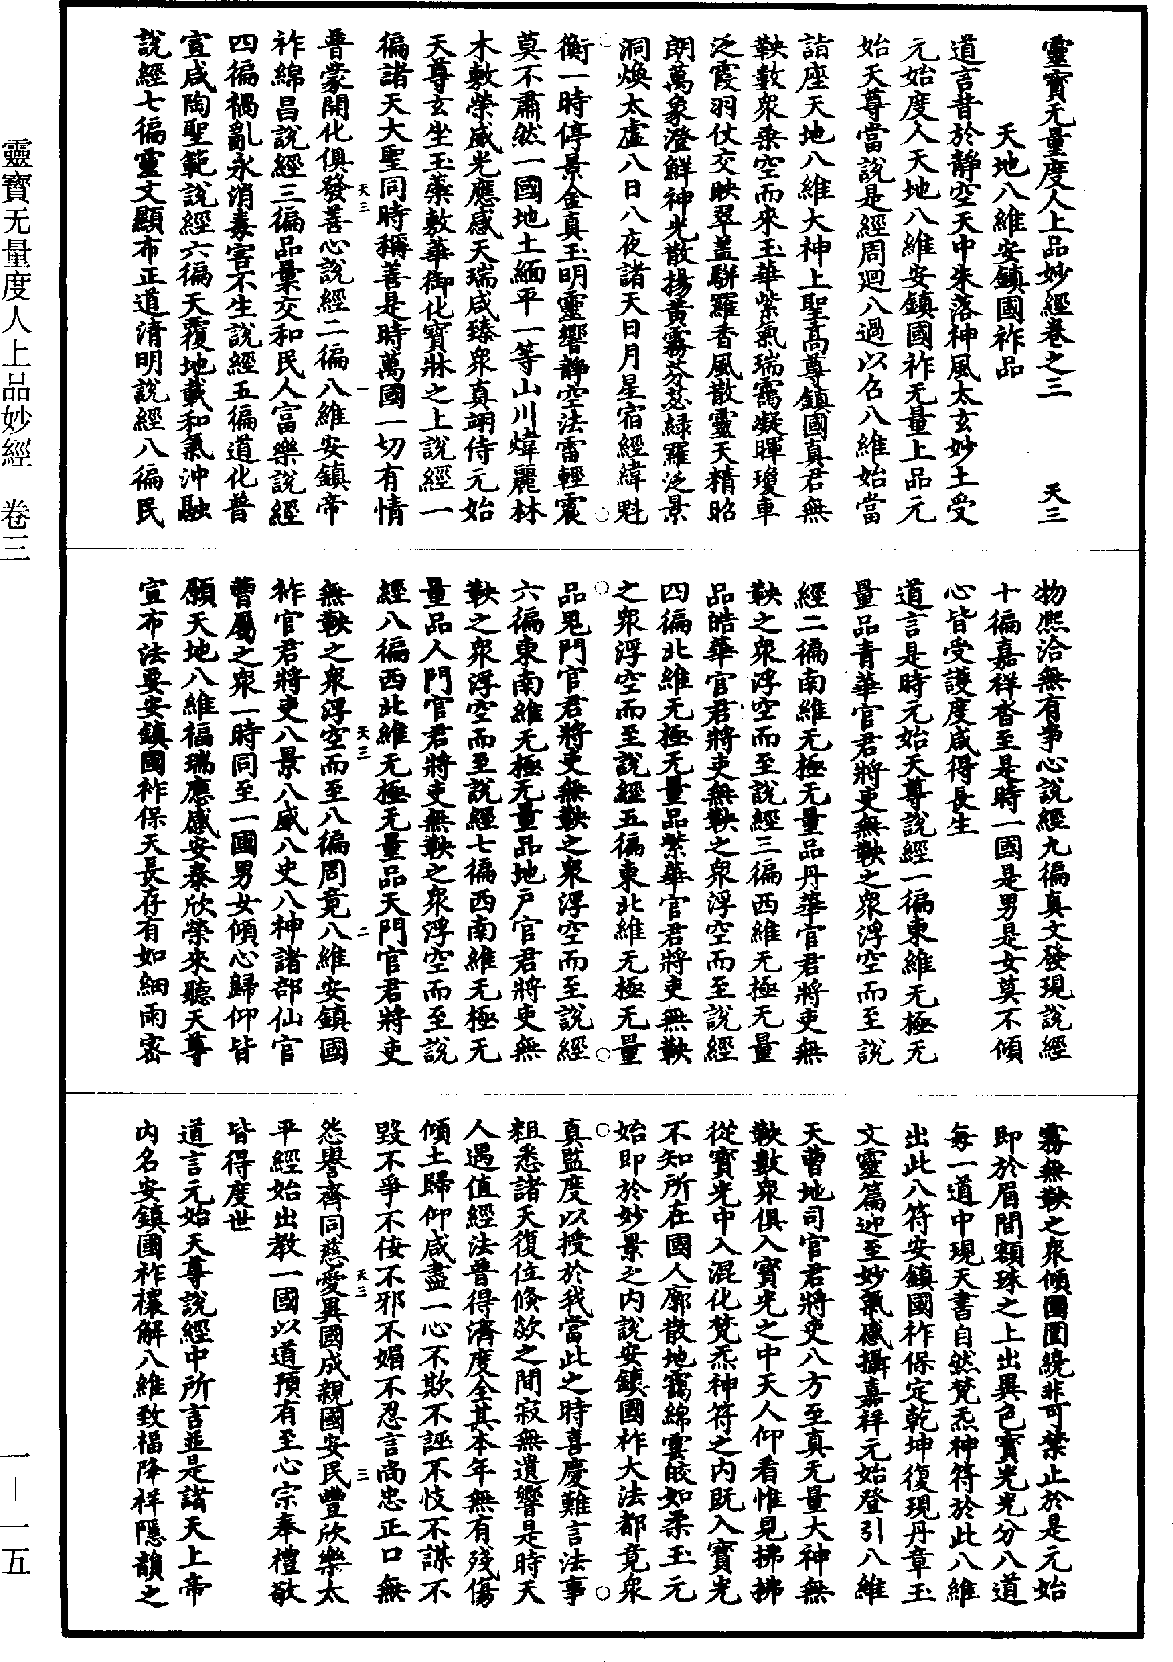 靈寶无量度人上品妙經 卷三
一—一五
靈寶无量度人上品妙經卷之三 天三
天地八維安鎮國祚品
道言昔於靜空天中朱落神風太玄妙土受
元始度人天地八維安鎮國祚无量上品元
始天尊當說是經周迴八過以名八維始當
詣座天地八維大神上聖高尊鎮國真君無
鞅數衆乘空而來玉華紫氣瑞靄凝暉瓊車
泛霞羽仗交映翠蓋駢羅香風散靈天精昭
朗萬象澄鮮神光散揚黃霧芬苾緑羅泛景
洞煥太虛八日八夜諸天日月星宿經緯魁
衡一時停景金真玉明靈響靜空法雷輕震
莫不肅然一國地土緬平一等山川煒麗林
木敷榮威光應感天瑞咸臻衆真翊侍元始
天尊玄坐玉蘂敷華御化寶牀之上說經一
徧諸天大聖同時稱善是時萬國一切有情
天三 一
普蒙開化俱發善心說經二徧八維安鎮帝
祚綿昌說經三徧品彙交和民人富樂說經
四徧禍亂永消毒害不生說經五徧道化普
宣咸陶聖範說經六徧天覆地載和氣沖融
說經七徧靈文顯布正道清明說經八徧民
物熙洽無有爭心說經九徧真文發現說經
十徧嘉祥沓至是時一國是男是女莫不傾
心皆受護度咸得長生
道言是時元始天尊說經一徧東維无極无
量品青華官君將吏無鞅之衆浮空而至說
經二徧南維无極无量品丹華官君將吏無
鞅之衆浮空而至說經三徧西維无極无量
品皓華官君將吏無鞅之衆浮空而至說經
四徧北維无極无量品紫華官君將吏無鞅
之衆浮空而至說經五徧東北維无極无量
品鬼門官君將吏無鞅之衆浮空而至說經
六徧東南維无極无量品地戶官君將吏無
鞅之衆浮空而至說經七徧西南維无極无
量品人門官君將吏無鞅之衆浮空而至說
經八徧西北維无極无量品天門官君將吏
天三 二
無鞅之衆浮空而至八徧周竟八維安鎮國
祚官君將吏八景八威八史八神諸部仙官
曹屬之衆一時同至一國男女傾心歸仰皆
願天地八維福瑞應感安泰欣榮來聽天尊
宣布法要安鎮國祚保天長存有如細雨密
霧無鞅之衆傾國圍繞非可禁止於是元始
即於眉間額珠之上出異色寶光光分八道
每一道中現天書自然梵炁神符於此八維
出此八符安鎮國祚保定乾坤復現丹章玉
文靈篇迎至妙氣感攝嘉祥元始登引八維
天曹地司官君將吏八方至真无量大神無
鞅數衆俱入寶光之中天人仰看惟見拂拂
從寶光中入混化梵炁神符之內既入寶光
不知所在國人廓散地靄綿雲皎如柔玉元
始即於妙景之內說安鎮國祚大法都竟衆
真監度以授於我當此之時喜慶難言法事
粗悉諸天復位倐欻之間寂無遺響是時天
人遇值經法普得濟度全其本年無有殘傷
傾土歸仰咸盡一心不欺不誣不忮不謀不
毀不爭不侫不邪不媚不忍言尚忠正口無
天三 三
怨譽齊同慈愛異國成親國安民豐欣樂太
平經始出教一國以道預有至心宗奉禮敬
皆得度世
道言元始天尊說經中所言並是諸天上帝
內名安鎮國祚禳解八維致福降祥隱韻之